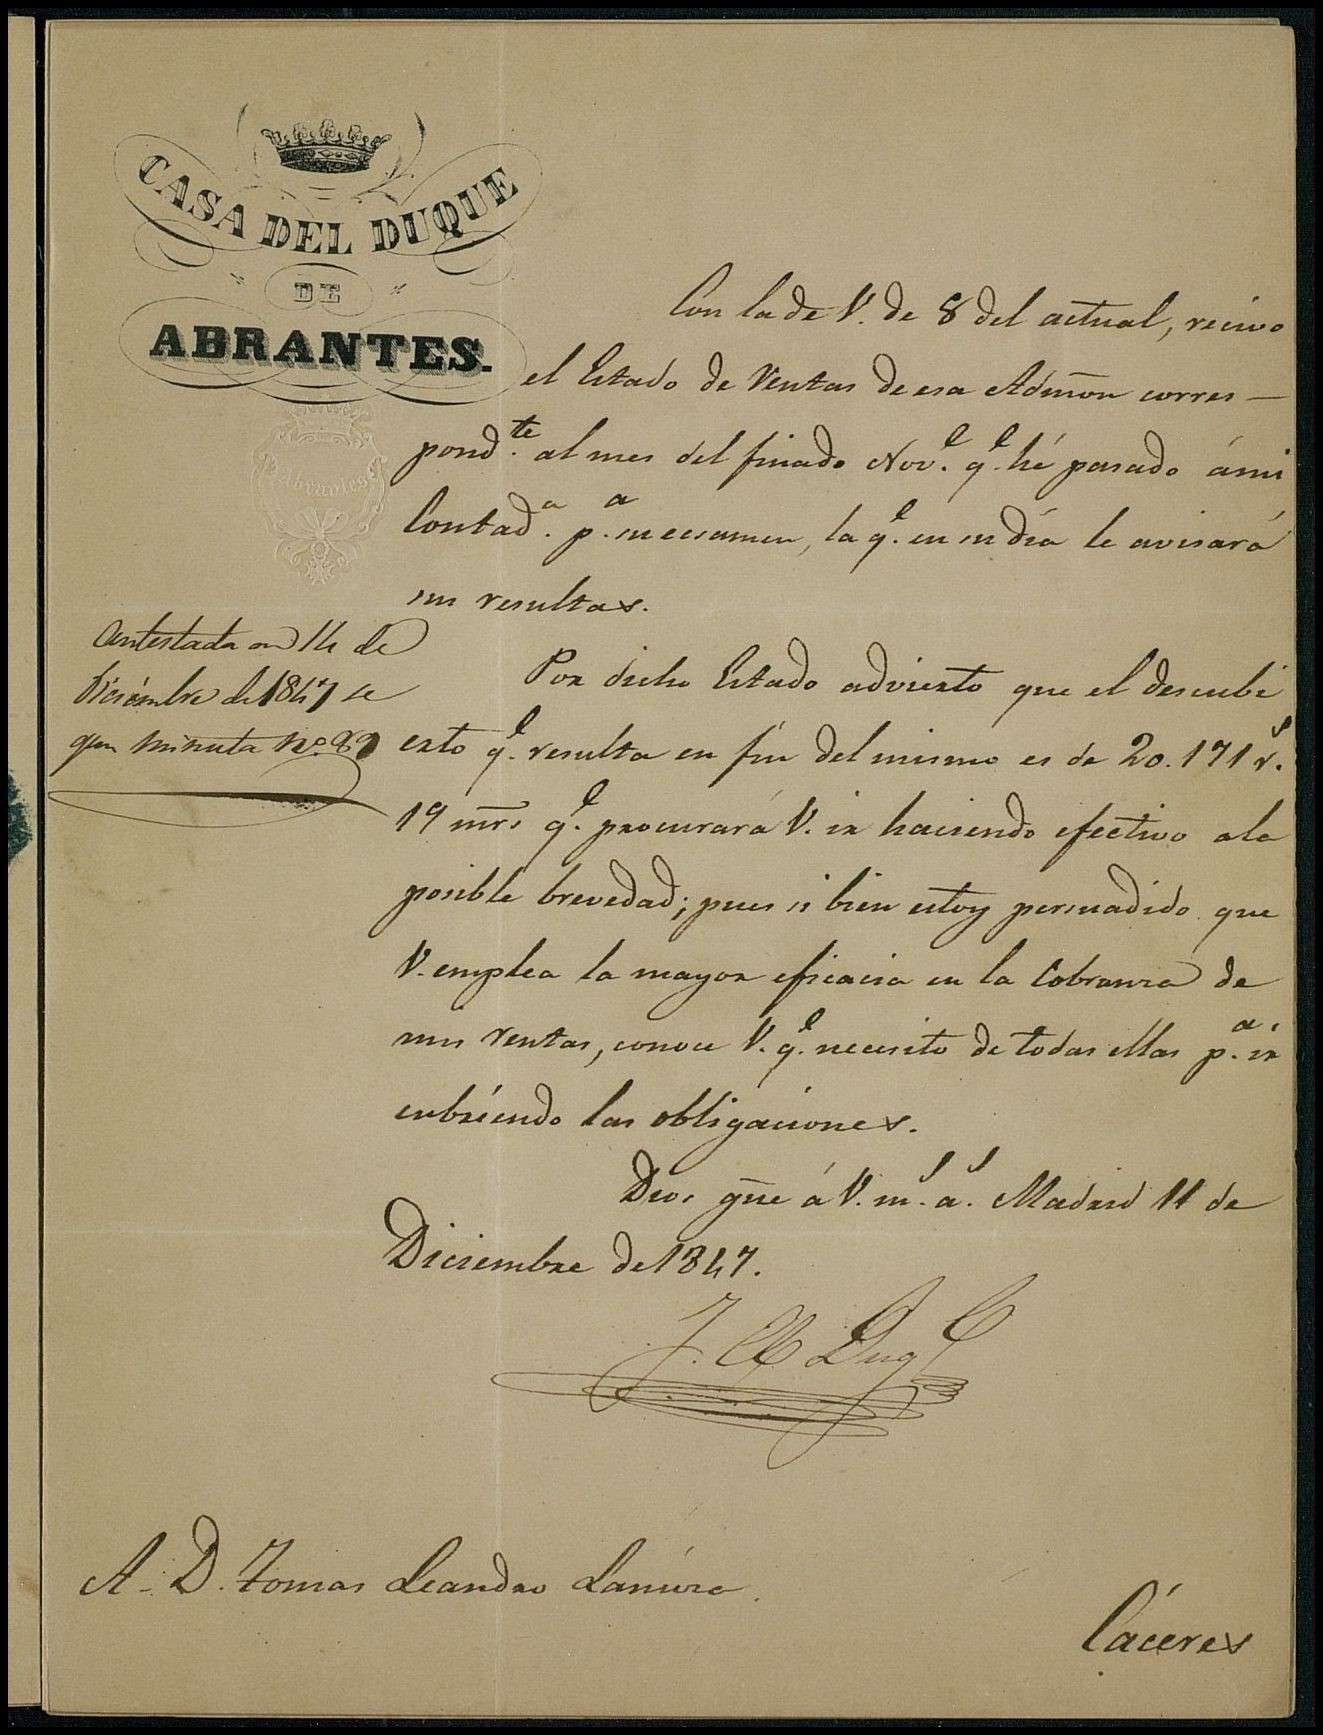 CASA DEL DUQUE
DE
ABRANTES.
Abrantes
Con la de V. de 8 del actual, recivo
el Estado de Rentas de esa Admōn corres-
pond.te al mes del finado Nov.e q.e hé pasado á mi
Contad.a p.a su ecsamen, la q.e en su día le avisará
sus resultas.
Contestada en 14 de
Diciembre de 1847 se
gun minuta nº
Por dicho Estado advierto que el descubi
erto q.e resulta en fin del mismo es de 20.171 r.s
19 mr̄s q.e procurará V. ir haciendo efectivo a la
posible brevedad; pues si bien estoy persuadido que
V. emplea la mayor eficacia en la Cobranza de
mis rentas, conoce V. q.e necesito de todas ellas p.a ir
cubriendo las obligaciones.
Dios gūe á V. m.s a.s Madrid 11 de
Diciembre de 1847.
J. El Duq
A. D. Tomas Leandro
Cáceres